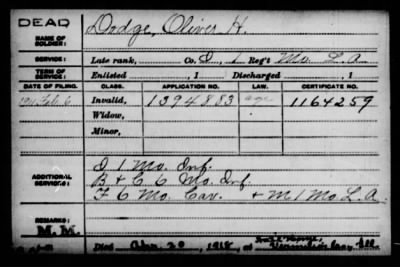 DEAD
NAME OF SOLDIER: Dodge, Oliver H.
SERVICE: Late rank, Co. D, 1 Reg't Mo. L. A.
TERM OF SERVICE: Enlisted , 1 Discharged , 1
DATE OF FILING. CLASS. APPLICATION NO. LAW. CERTIFICATE NO.
Feb. 6 Invalid, 1394883 age 1164259
Widow,
Minor,
D 1 Mo. Inf.
ADDITIONAL SERVICES: B & C 6 Mo. Inf.
F 6 Mo. Cav. + M 1 Mo. L. A.
REMARKS:
M. M.
Died 20, 1918 at Ill.